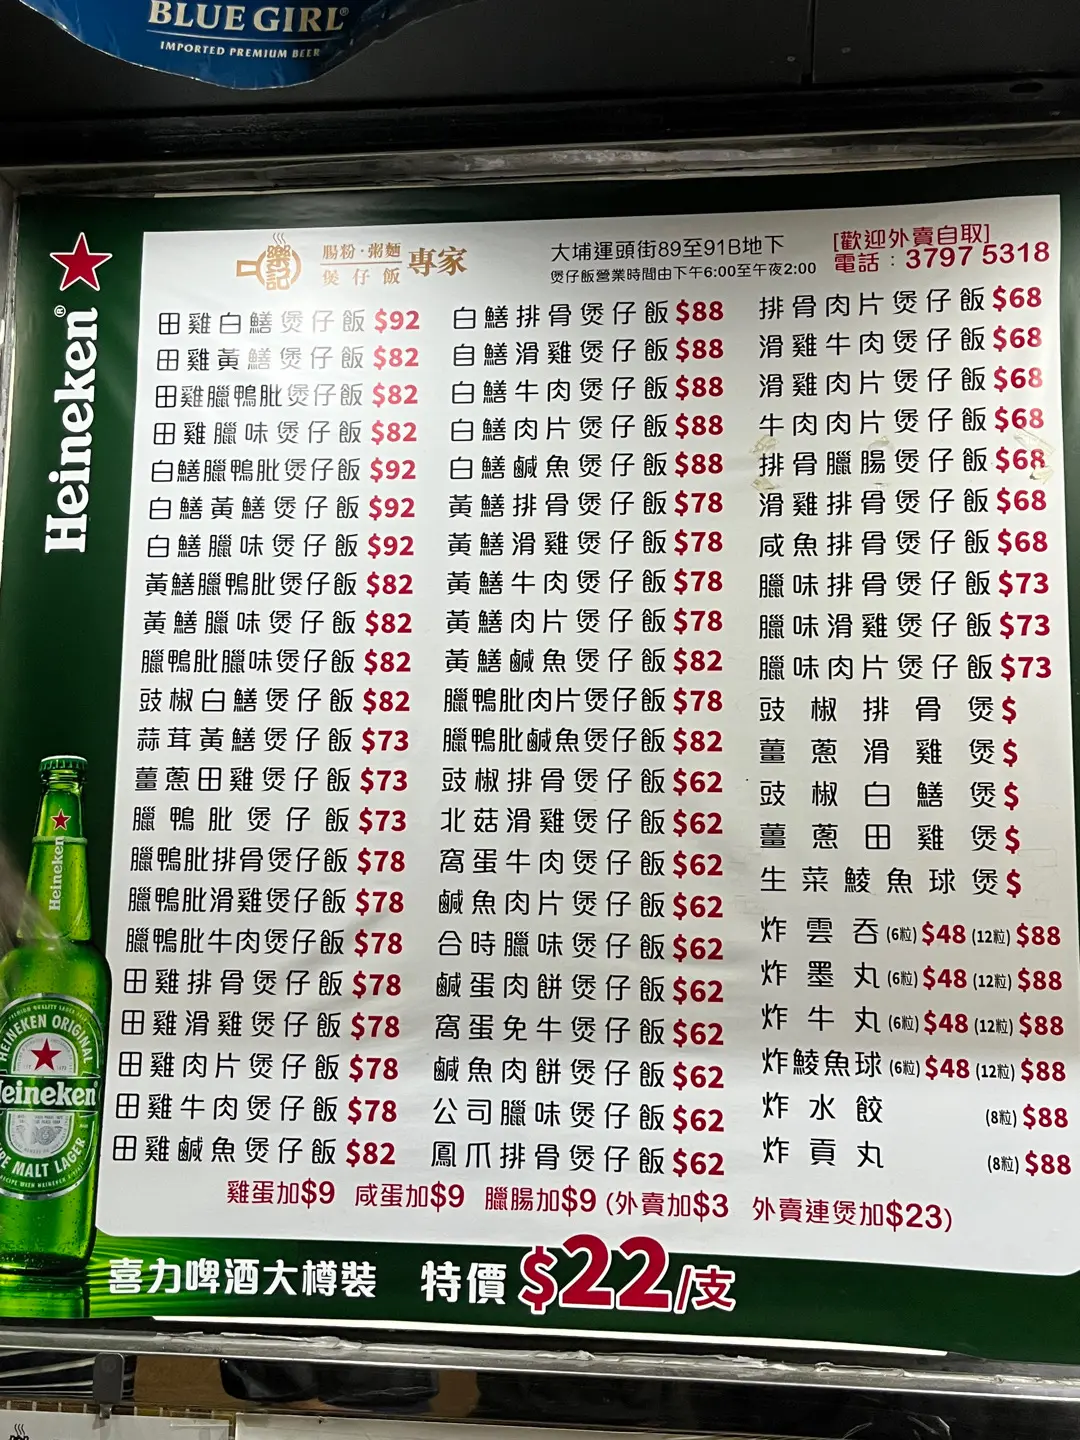 BLUE GIRL®
IMPORTED PREMIUM BEER
Heineken®
樂記
腸粉·粥麵
煲仔飯
專家
大埔運頭街89至91B地下
煲仔飯營業時間由下午6:00至午夜2:00
[歡迎外賣自取]
電話：3797 5318
田雞白鱔煲仔飯 $92
田雞黃鱔煲仔飯 $82
田雞臘鴨肶煲仔飯 $82
田雞臘味煲仔飯 $82
白鱔臘鴨肶煲仔飯 $92
白鱔黃鱔煲仔飯 $92
白鱔臘味煲仔飯 $92
黃鱔臘鴨肶煲仔飯 $82
黃鱔臘味煲仔飯 $82
臘鴨肶臘味煲仔飯 $82
豉椒白鱔煲仔飯 $82
蒜茸黃鱔煲仔飯 $73
薑蔥田雞煲仔飯 $73
臘鴨肶煲仔飯 $73
臘鴨肶排骨煲仔飯 $78
臘鴨肶滑雞煲仔飯 $78
臘鴨肶牛肉煲仔飯 $78
田雞排骨煲仔飯 $78
田雞滑雞煲仔飯 $78
田雞肉片煲仔飯 $78
田雞牛肉煲仔飯 $78
田雞鹹魚煲仔飯 $82
白鱔排骨煲仔飯 $88
白鱔滑雞煲仔飯 $88
白鱔牛肉煲仔飯 $88
白鱔肉片煲仔飯 $88
白鱔鹹魚煲仔飯 $88
黃鱔排骨煲仔飯 $78
黃鱔滑雞煲仔飯 $78
黃鱔牛肉煲仔飯 $78
黃鱔肉片煲仔飯 $78
黃鱔鹹魚煲仔飯 $82
臘鴨肶肉片煲仔飯 $78
臘鴨肶鹹魚煲仔飯 $82
豉椒排骨煲仔飯 $62
北菇滑雞煲仔飯 $62
窩蛋牛肉煲仔飯 $62
鹹魚肉片煲仔飯 $62
合時臘味煲仔飯 $62
鹹蛋肉餅煲仔飯 $62
窩蛋免牛煲仔飯 $62
鹹魚肉餅煲仔飯 $62
公司臘味煲仔飯 $62
鳳爪排骨煲仔飯 $62
排骨肉片煲仔飯 $68
滑雞牛肉煲仔飯 $68
滑雞肉片煲仔飯 $68
牛肉肉片煲仔飯 $68
排骨臘腸煲仔飯 $68
滑雞排骨煲仔飯 $68
咸魚排骨煲仔飯 $68
臘味排骨煲仔飯 $73
臘味滑雞煲仔飯 $73
臘味肉片煲仔飯 $73
豉椒排骨煲 $
薑蔥滑雞煲 $
豉椒白鱔煲 $
薑蔥田雞煲 $
生菜鯪魚球煲 $
炸雲吞 (6粒) $48 (12粒) $88
炸墨丸 (6粒) $48 (12粒) $88
炸牛丸 (6粒) $48 (12粒) $88
炸鯪魚球 (6粒) $48 (12粒) $88
炸水餃 (8粒) $88
炸貢丸 (8粒) $88
雞蛋加$9 咸蛋加$9 臘腸加$9 (外賣加$3 外賣連煲加$23)
喜力啤酒大樽裝 特價 $22/支
Heineken
HEINEKEN ORIGINAL
Heineken®
PURE MALT LAGER